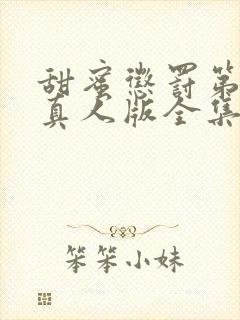 甜蜜惩罚第
真人版全集
笨笨小妹